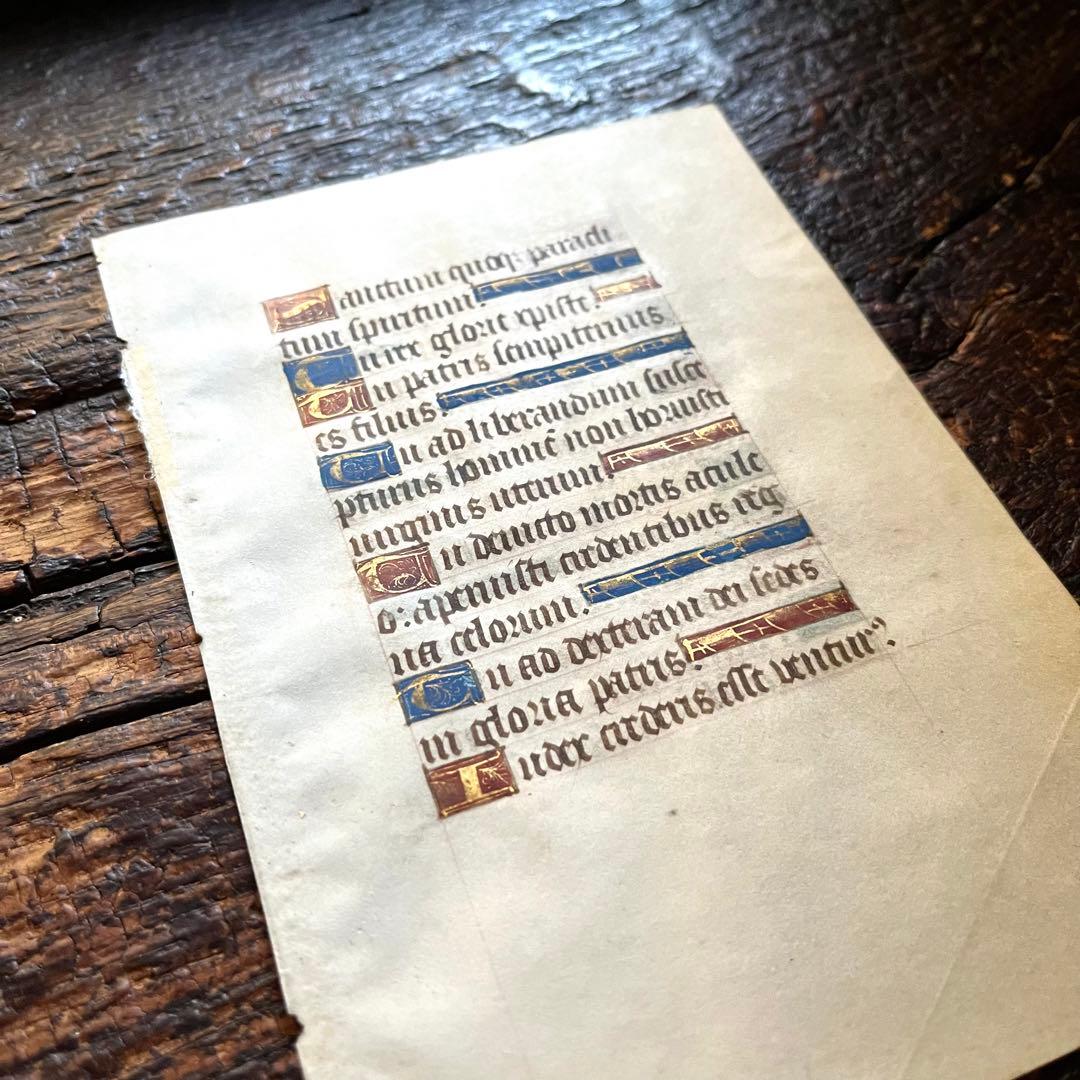 Sanctum quoq; paracli
tum spiritum.
Tu rex glorie xpiste.
Tu patris sempiternus
es filius.
Tu ad liberandum susce
pturus homine᷒ non horruisti
uirginis uterum.
Tu deuicto mortis acule
o: aperuisti credentibus reg
na celorum.
Tu ad dexteram dei sedes
in gloria patris.
Iudex crederis esse uentur⁹.